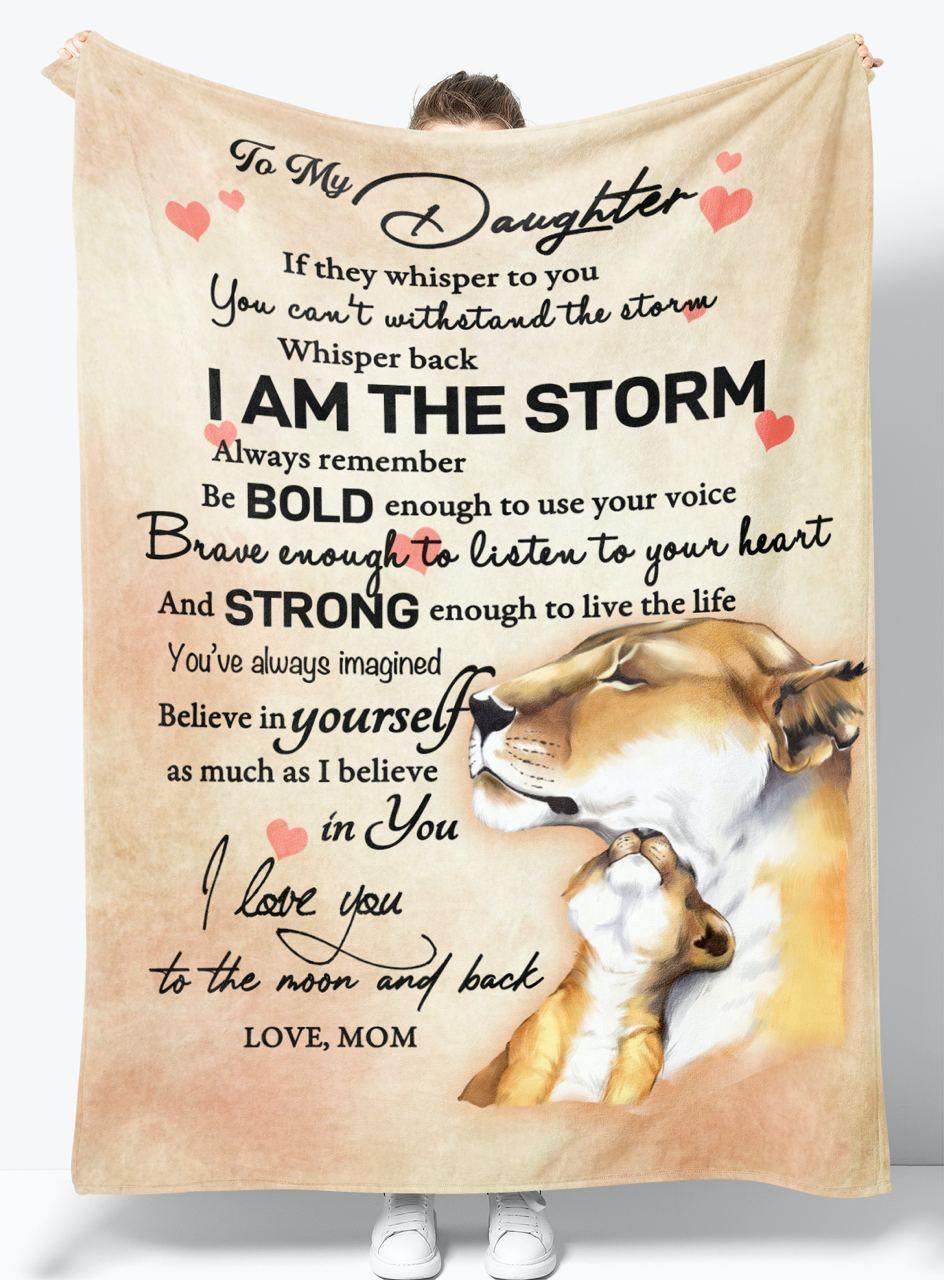 To My Daughter
If they whisper to you
You can't withstand the storm
Whisper back
I AM THE STORM
Always remember
Be BOLD enough to use your voice
Brave enough to listen to your heart
And STRONG enough to live the life
You've always imagined
Believe in yourself
as much as I believe
in You
I love you
to the moon and back
LOVE, MOM